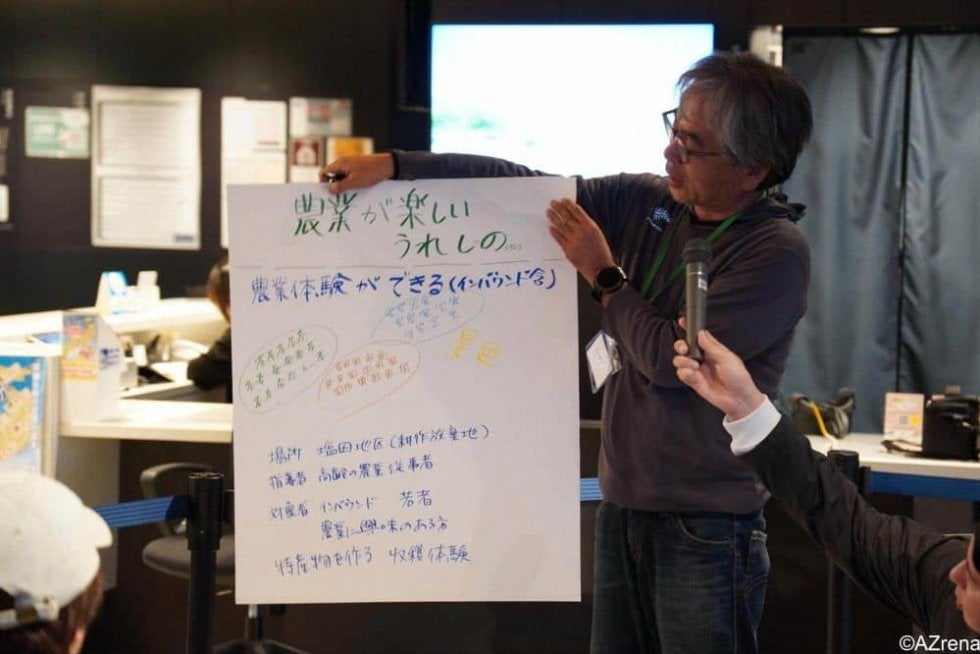 農業が楽しい
うれしの。
農業体験ができる(インバウンド含)
場所 塩田地区(耕作放棄地)
指導者 高齢の農業従事者
対象者 インバウンド 若者
農業に興味のある方
特産物を作る 収穫体験
©AZrena